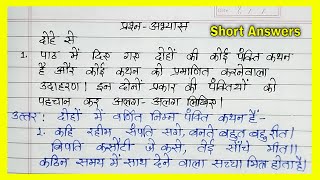 प्रश्न-अभ्यास
Short Answers
दोहे से
1. पाठ में दिए गए दोहों की कोई पंक्ति कथन
है और कोई कथन को प्रमाणित करनेवाला
उदाहरण। इन दोनों प्रकार की पंक्तियों को
पहचान कर अलग-अलग लिखिए।
उत्तर: दोहों में वर्णित निम्न पंक्ति कथन हैं-
1. कहि रहीम संपति सगे, बनते बहुत बहु रीत।
बिपति कसौटी जे कसे, तेई साँचे मीत॥
कठिन समय में साथ देने वाला सच्चा मित्र होता है।